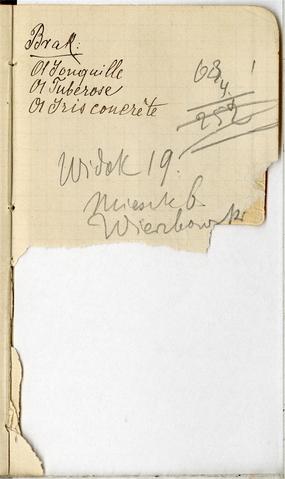 Brak:
Ol Jonquille
Ol Tubérose
Ol Iris concrète
63
4
252
Widok 19.
Mieszk 6
Wierzbowski